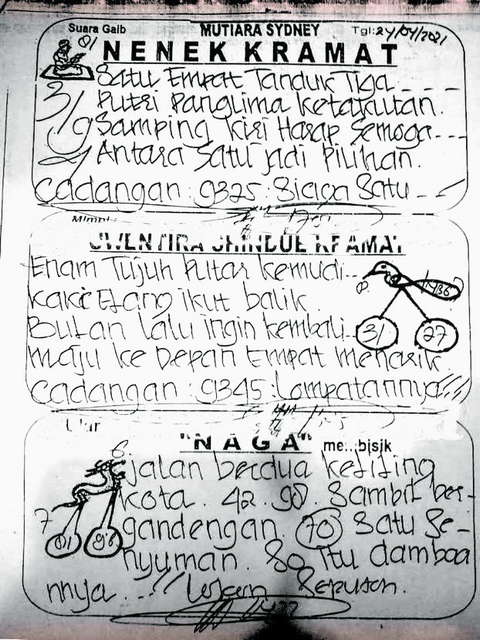 Suara Gaib MUTIARA SYDNEY Tgl: 24/04/2021
NENEK KRAMAT
Satu Empat Tanduk Tiga - - - -
Putri Panglima Ketakutan.
Samping Kiri Harap Semoga - - -
Antara Satu jadi Pilihan.
Cadangan : 9325 : Siapa Satu - -
Mimpi
Enam Tujuh Putar Kemudi - -
Kaki Elang ikut balik
Bulan lalu ingin kembali - -
31 27
Maju ke Depan Empat menarik
Cadangan : 9345 : Lompatannya
"NAGA"
jalan berdua keliling
kota . 42 . 98 . Sambil ber-
7
gandengan 70 Satu Se-
96
nyuman . 80 itu damba a
nnya